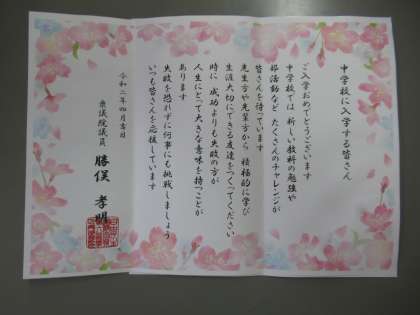 中学校に入学する皆さん
ご入学おめでとうございます
中学校では 新しい教科の勉強や
部活動など たくさんのチャレンジが
皆さんを待っています
先生方や先輩方から 積極的に学び
生涯大切にできる友達をつくってください
時に 成功よりも失敗の方が
人生にとって大きな意味を持つことが
あります
失敗を恐れずに何事にも挑戦しましょう
いつも皆さんを応援しています
令和二年四月吉日
衆議院議員
勝俣 孝明